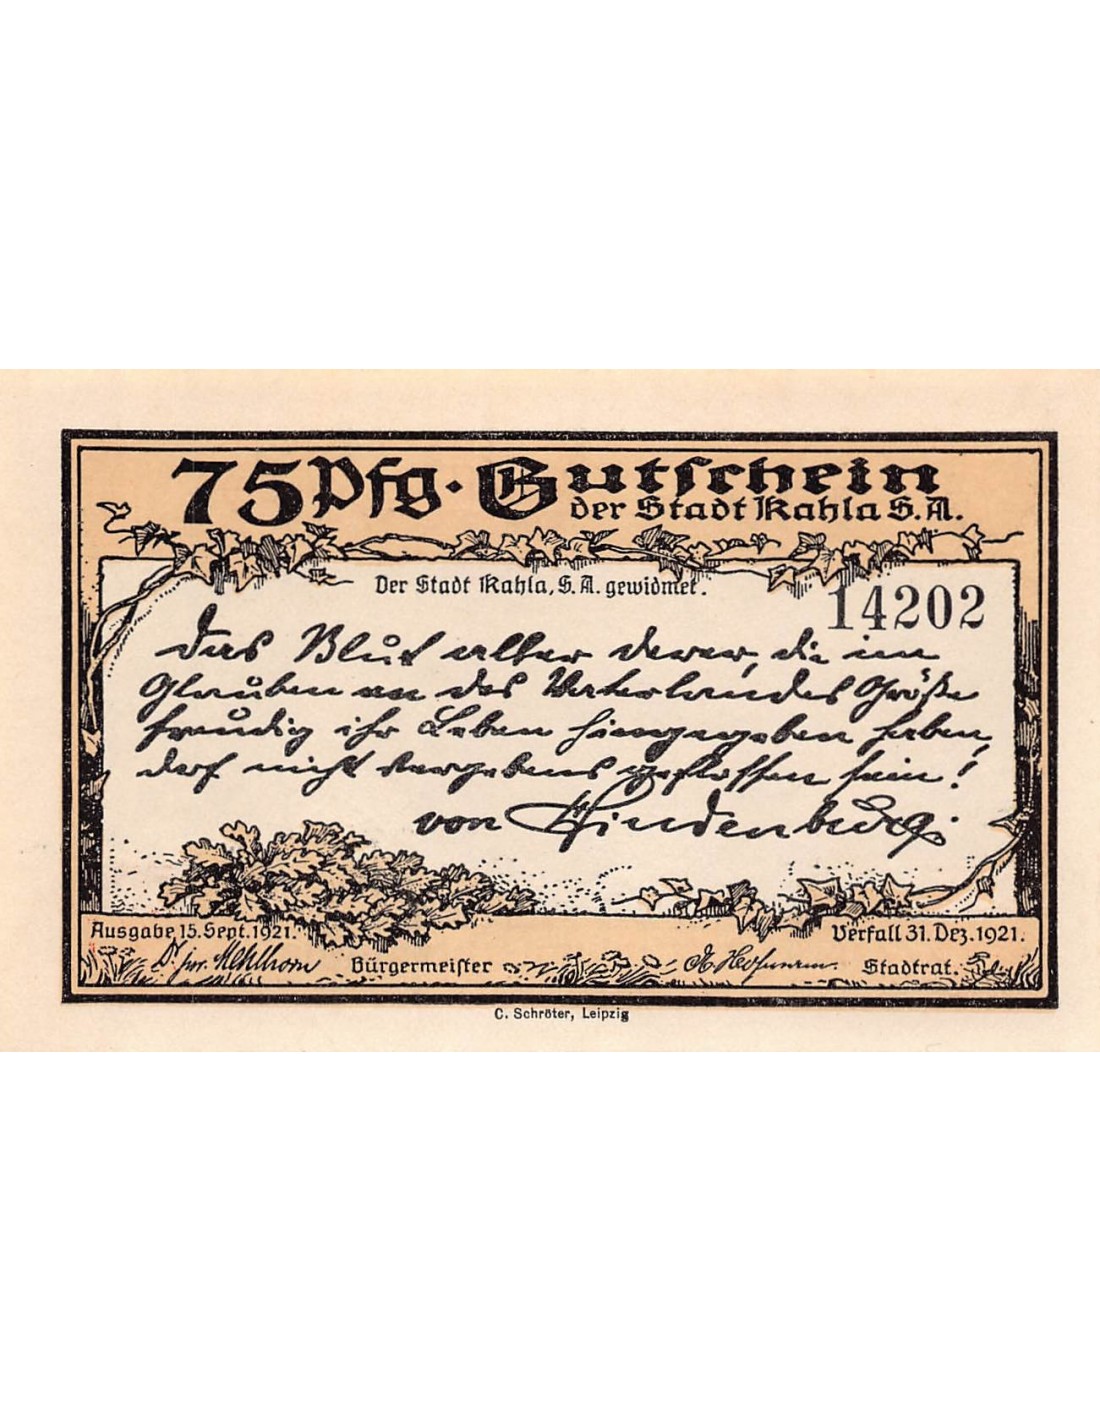 75 Pfg. Gutschein
der Stadt Kahla S.A.
Der Stadt Kahla, S.A. gewidmet.
14202
Das Blut aller derer, die im
Glauben an des Vaterlandes Größe
freudig ihr Leben hingegeben haben,
darf nicht vergebens geflossen sein!
von Hindenburg.
Ausgabe 15. Sept. 1921.
Verfall 31. Dez. 1921.
Dr. jur. Mehlhorn Bürgermeister
Stadtrat.
C. Schröter, Leipzig